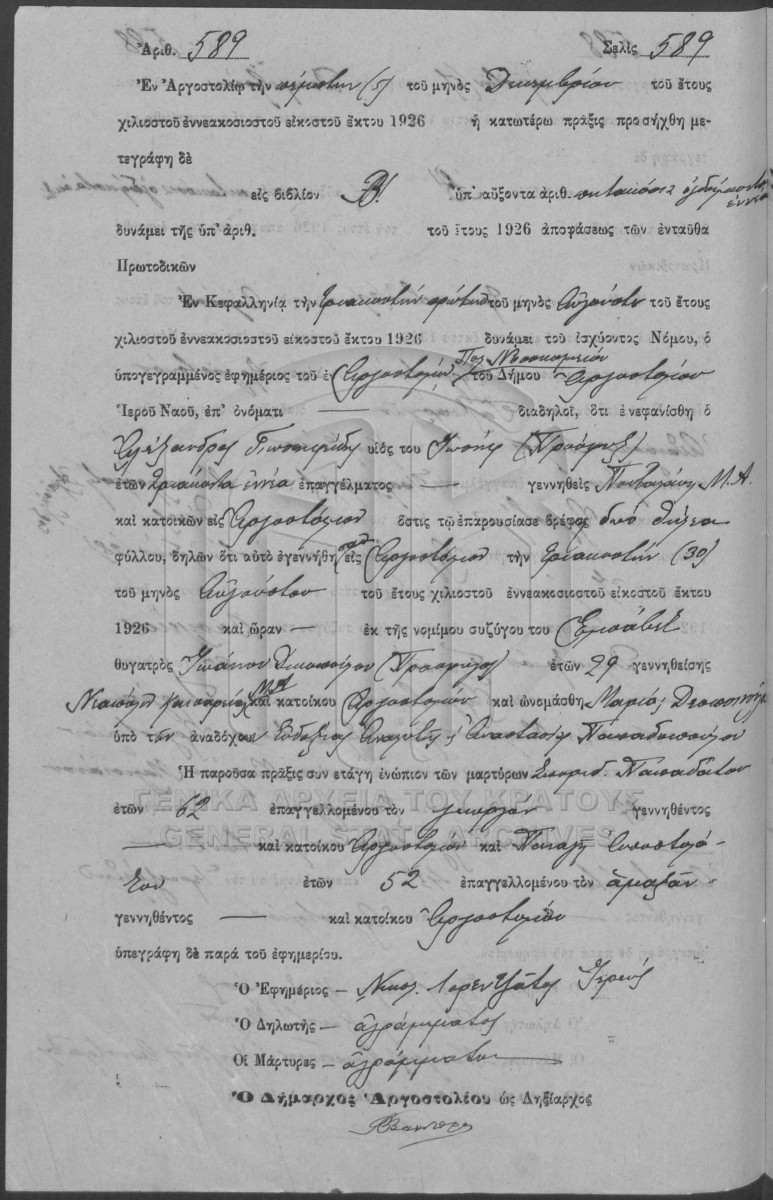 Ἀριθ. 589 Σελὶς 589
Ἐν Ἀργοστολίῳ τὴν πέμπτην (5) τοῦ μηνὸς Δεκεμβρίου τοῦ ἔτους
χιλιοστοῦ ἐννεακοσιοστοῦ εἰκοστοῦ ἕκτου 1926 ἡ κατωτέρω πρᾶξις προσήχθη με-
τεγράφη δὲ
εἰς βιβλίον Β! ὑπ' αὔξοντα ἀριθ. πεντακόσια ὀγδοήκοντα
ἐννέα
δυνάμει τῆς ὑπ' ἀριθ. τοῦ ἔτους 1926 ἀποφάσεως τῶν ἐνταῦθα
Πρωτοδικῶν
Ἐν Κεφαλληνίᾳ τὴν τριακοστὴν πρώτην τοῦ μηνὸς Αὐγούστου τοῦ ἔτους
χιλιοστοῦ ἐννεακοσιοστοῦ εἰκοστοῦ ἕκτου 1926 δυνάμει τοῦ ἰσχύοντος Νόμου, ὁ
Νοσοκομείου
ὑπογεγραμμένος ἐφημέριος τοῦ ἐν Ἀργοστολίῳ τοῦ Δήμου Ἀργοστολίου
Ἱεροῦ Ναοῦ, ἐπ' ὀνόματι — διαδηλοῖ, ὅτι ἐνεφανίσθη ὁ
Ἀλέξανδρος υἱὸς του Ἰωσὴφ (Πρόσφυξ)
ἐτῶν τριάκοντα ἐννέα ἐπαγγέλματος — γεννηθεὶς Μ.Α.
καὶ κατοικῶν εἰς Ἀργοστόλιον ὅστις τῷ ἐπαρουσίασε βρέφος δύο θήλεα
φύλλου, δηλῶν ὅτι αὐτὸ ἐγεννήθη εἰς Ἀργοστόλιον τὴν τριακοστὴν (30)
τοῦ μηνὸς Αὐγούστου τοῦ ἔτους χιλιοστοῦ ἐννεακοσιοστοῦ εἰκοστοῦ ἕκτου
1926 καὶ ὥραν — ἐκ τῆς νομίμου συζύγου του Ἐλισάβετ
θυγατρὸς Ἰωάννου (Πρόσφυγος) ἐτῶν 29 γεννηθείσης
Μ.Α
καὶ κατοίκου Ἀργοστολίου καὶ ὠνομάσθη Μαρία, Δέσποινα
ὑπὸ τῶν ἀναδόχου Εὐδοξίας Παπαδοπούλου
Ἡ παροῦσα πρᾶξις συνετάγη ἐνώπιον τῶν μαρτύρων Σπυριδ. Παπαδάτου
ἐτῶν 62 ἐπαγγελλομένου τὸν γεωργὸν γεννηθέντος
— καὶ κατοίκου Ἀργοστολίου καὶ Παναγῆ Ἀποστολά-
του ἐτῶν 52 ἐπαγγελλομένου τὸν ἁμαξᾶν
γεννηθέντος — καὶ κατοίκου Ἀργοστολίου
ὑπεγράφη δὲ παρὰ τοῦ ἐφημερίου.
Ὁ Ἐφημέριος – Νικολ. Λορεντζᾶτος Ἱερεύς
Ὁ Δηλωτὴς – ἀγράμματος
Οἱ Μάρτυρες – ἀγράμματοι
Ὁ Δήμαρχος Ἀργοστολίου ὡς Ληξίαρχος
ΓΕΝΙΚΑ ΑΡΧΕΙΑ ΤΟΥ ΚΡΑΤΟΥΣ
GENERAL STATE ARCHIVES